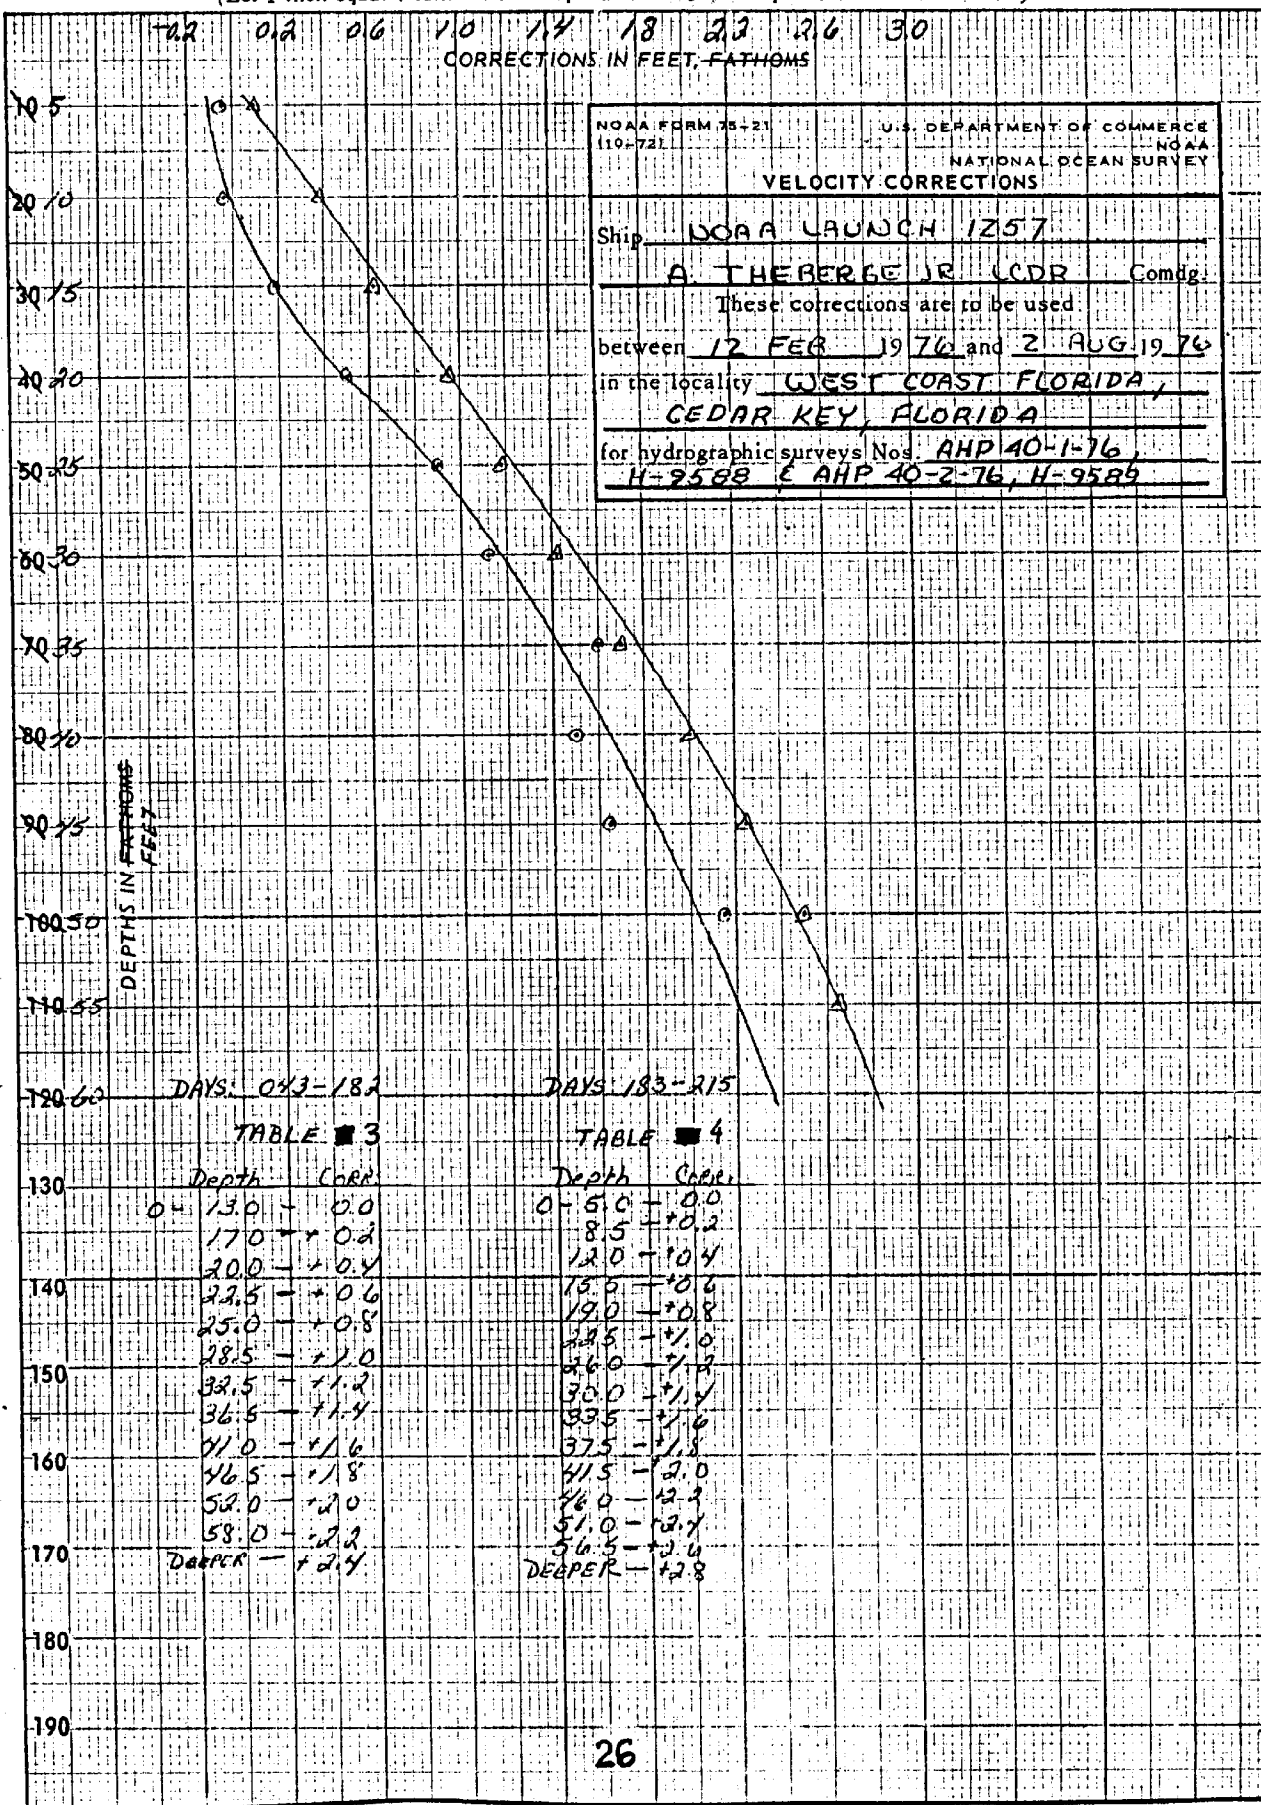 -0.2 0.2 0.6 1.0 1.4 1.8 2.2 2.6 3.0
CORRECTIONS IN FEET, FATHOMS
NOAA FORM 75-21
(10-72)
U.S. DEPARTMENT OF COMMERCE
NOAA
NATIONAL OCEAN SURVEY
VELOCITY CORRECTIONS
Ship NOAA LAUNCH 1257
A. THEBERGE JR LCDR Comdg.
These corrections are to be used
between 12 FEB 1976 and 2 AUG 1976
in the locality WEST COAST FLORIDA,
CEDAR KEY, FLORIDA
for hydrographic surveys Nos. AHP 40-1-76,
H-9588 & AHP 40-2-76, H-9589
10 5
20 10
30 15
40 20
50 25
60 30
70 35
80 40
90 45
100 50
110 55
120 60
130
140
150
160
170
180
190
DEPTHS IN FATHOMS
FEET
DAYS: 043-182
TABLE 3
Depth CORR.
0 - 13.0 - 0.0
17.0 - +0.2
20.0 - +0.4
22.5 - +0.6
25.0 - +0.8
28.5 - +1.0
32.5 - +1.2
36.5 - +1.4
41.0 - +1.6
46.5 - +1.8
52.0 - +2.0
58.0 - +2.2
DEEPER - +2.4
DAYS 183-215
TABLE 4
Depth Corr.
0 - 5.0 - 0.0
8.5 - +0.2
12.0 - +0.4
15.5 - +0.6
19.0 - +0.8
22.5 - +1.0
26.0 - +1.2
30.0 - +1.4
33.5 - +1.6
37.5 - +1.8
41.5 - +2.0
46.0 - +2.2
51.0 - +2.4
56.5 - +2.6
DEEPER - +2.8
26